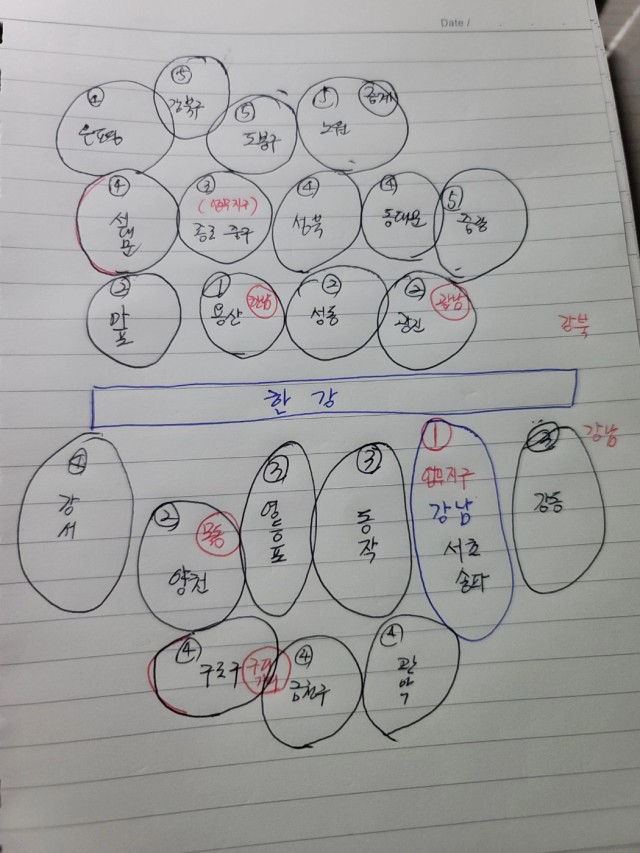 Date /
⑤
강북구
④
은평
⑤
도봉구
⑤
노원
중계
④
서대문
③
(업무지구)
종로 중구
④
성북
④
동대문
⑤
중랑
②
마포
①
용산
②
성동
②
광진
광남
강북
한강
강남
④
강서
②
목동
양천
③
영등포
③
동작
①
업무지구
강남
서초
송파
강동
④
구로구
④
금천구
④
관악